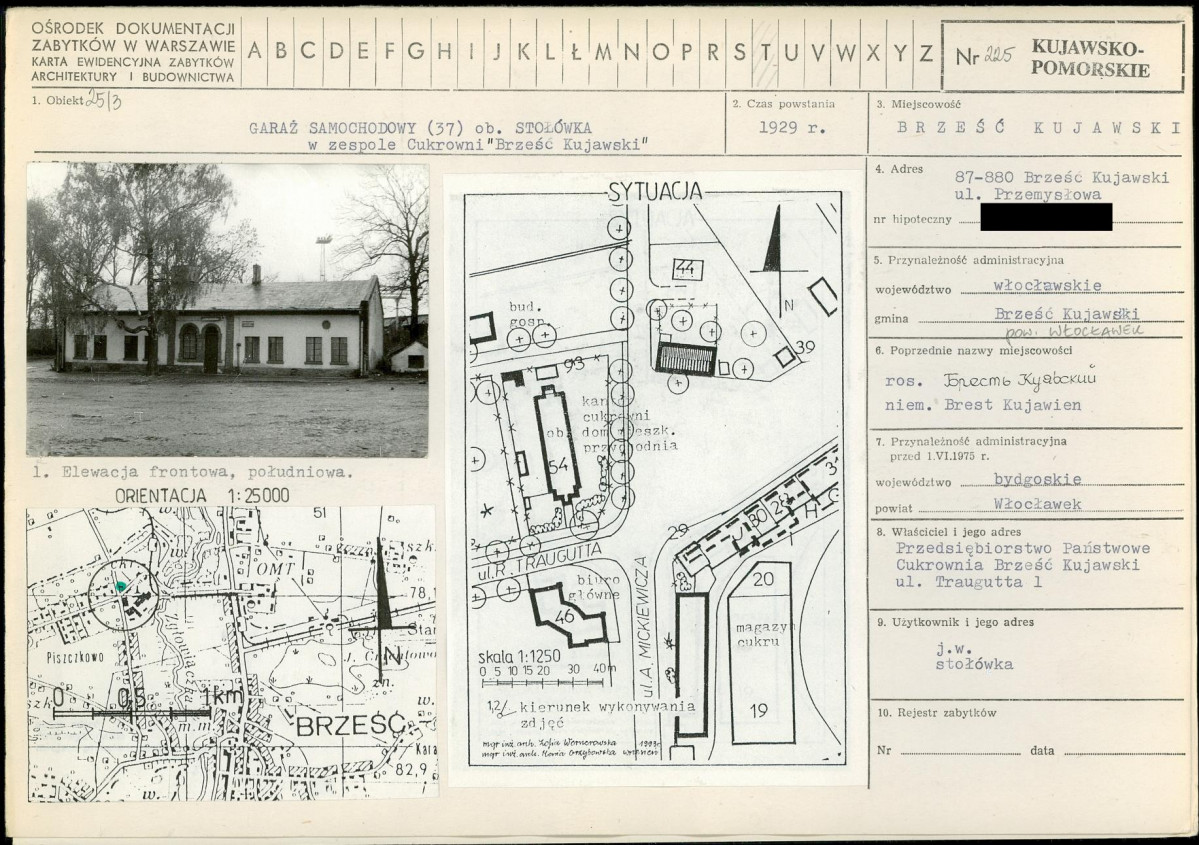 OŚRODEK DOKUMENTACJI
ZABYTKÓW W WARSZAWIE
KARTA EWIDENCYJNA ZABYTKÓW
ARCHITEKTURY I BUDOWNICTWA
A B C D E F G H I J K L Ł M N O P R S T U V W X Y Z
Nr 225
KUJAWSKO-
POMORSKIE
1. Obiekt 25/3
GARAŻ SAMOCHODOWY (37) ob. STOŁÓWKA
w zespole Cukrowni "Brześć Kujawski"
2. Czas powstania
1929 r.
3. Miejscowość
BRZEŚĆ KUJAWSKI
4. Adres
87-880 Brześć Kujawski
ul. Przemysłowa
nr hipoteczny
5. Przynależność administracyjna
województwo włocławskie
gmina Brześć Kujawski
pow. WŁOCŁAWEK
6. Poprzednie nazwy miejscowości
ros. Брестъ Куявский
niem. Brest Kujawien
7. Przynależność administracyjna
przed 1.VI.1975 r.
województwo bydgoskie
powiat Włocławek
8. Właściciel i jego adres
Przedsiębiorstwo Państwowe
Cukrownia Brześć Kujawski
ul. Traugutta 1
9. Użytkownik i jego adres
j.w.
stołówka
10. Rejestr zabytków
Nr data
1. Elewacja frontowa, południowa.
ORIENTACJA 1:25000
51
OMT
78,1
Piszczkowo
Zgłowiączka
N
0 0,5 1km
BRZEŚĆ
m.m.
Kara
82,9
w.
SYTUACJA
44
N
bud.
gosp.
39
93
cukrowni
54
29
30
28
H
ul.R.TRAUGUTTA
ul.A.MICKIEWICZA
biuro
główne
46
20
magazyn
cukru
19
skala 1:1250
0 5 10 15 20 30 40m
1,2 kierunek wykonywania
zdjęć